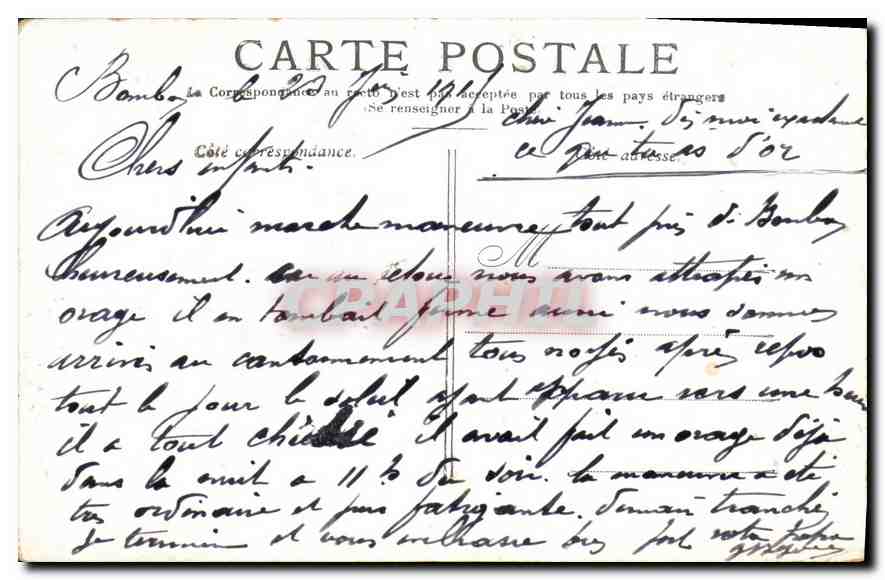 CARTE POSTALE
le 23
La Correspondance au recto n'est pas acceptée par tous les pays étrangers
(Se renseigner à la Poste)
chère Jeanne, dis moi
ce que tu as d'or
Côté correspondance. Côté adresse.
Chers enfants.
aujourd'hui marche manœuvre tout près de
M
heureusement. car au retour nous avons attrapés un
CPAPHIL
orage il en tombait ferme aussi nous sommes
arrivés au cantonnement tous noyés après repos
tout le jour le soleil ayant apparu vers une heure
il a tout il avait fait un orage déjà
dans la nuit a 11 h du soir. la manœuvre a été
très ordinaire et peu fatigante. demain tranchées
Je termine et vous embrasse bien fort votre papa